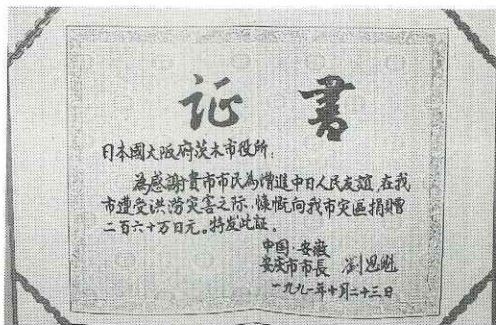 证 書
日本國大阪府茨木市役所：
為感謝貴市市民為增進中日人民友誼，在我
市遭受洪涝灾害之际，慷慨向我市灾區捐贈
二百六十万日元。特发此証。
中国·安徽
安庆市市長 劉
一九九一年十月二十三日